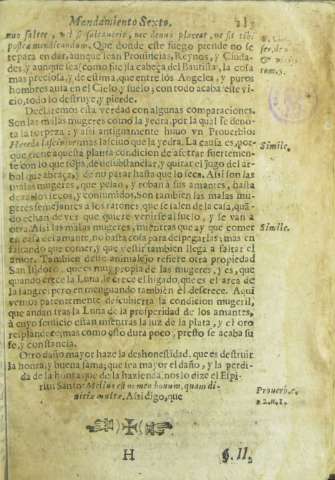 Mandamiento Sexto.
nus saltet, vt si saltauerit, nec donũ placeat, ne sit tibi
postea mendicandum. Que donde este fuego prende no se
repara en dar, aunque sean Prouincias, Reynos, y Ciuda-
des, y aunque sea, como fue, la cabeça del Bautista, la cosa
mas preciosa, y de estima, que entre los Angeles, y puros
hombres auia en el Cielo, y suelo; con todo acaba este vi-
cio, todo lo destruye, y pierde.
Declaremos esta verdad con algunas comparaciones.
Son las malas mugeres como la yedra, por la qual se deno-
ta la torpeza: y assi antiguamente huuo vn Prouerbio:
Hedera lasciuior: mas lasciuo que la yedra. La causa es, por-
que tiene aquesta planta condicion de asserrar fuertemen-
te con lo que topa, desustanciarle, y quitar el jugo del ar-
bol que abraça, y de no parar hasta que lo seca. Assi son las
malas mugeres, que pelan, y roban a sus amantes, hasta
dexarlos secos, y consumidos. Son tambien las malas mu-
geres semejantes a los ratones, que se salen de la casa, quã-
do echan de ver que quiere venirse al suelo, y se van a
otra. Assi las malas mugeres, mientras que ay que comer
en casa del amante, no basta cosa para despegarlas; mas en
faltando que comer, y que vestir tambien llega a faltar el
amor. Tambien deste animalejo refiere otra propiedad
San Isidoro, que es muy propia de las mugeres, y es, que
quando crece la Luna, le crece el higado, que es el arca de
la sangre, pero en menguando tambien el descrece. Aqui
vemos patentemente descubierta la condicion mugeril,
que andan tras la Luna de la prosperidad de los amantes,
à cuyo seruicio estan mientras la luz de la plata, y el oro
resplandece; mas como esto dura poco, presto se acaba su
fe, y constancia.
Otro daño mayor haze la deshonestidad, que es destruir
la honra, y buena fama; que sea mayor el daño, y la perdi-
da de la honra, que de la hazienda, nos lo dize el Espi-
ritu Santo: Melius est nomen bonum, quam di-
uitiæ multæ. Assi digo, que
Simile.
Simile.
Prouerb. c.
22. n. 1.
H
§. II,